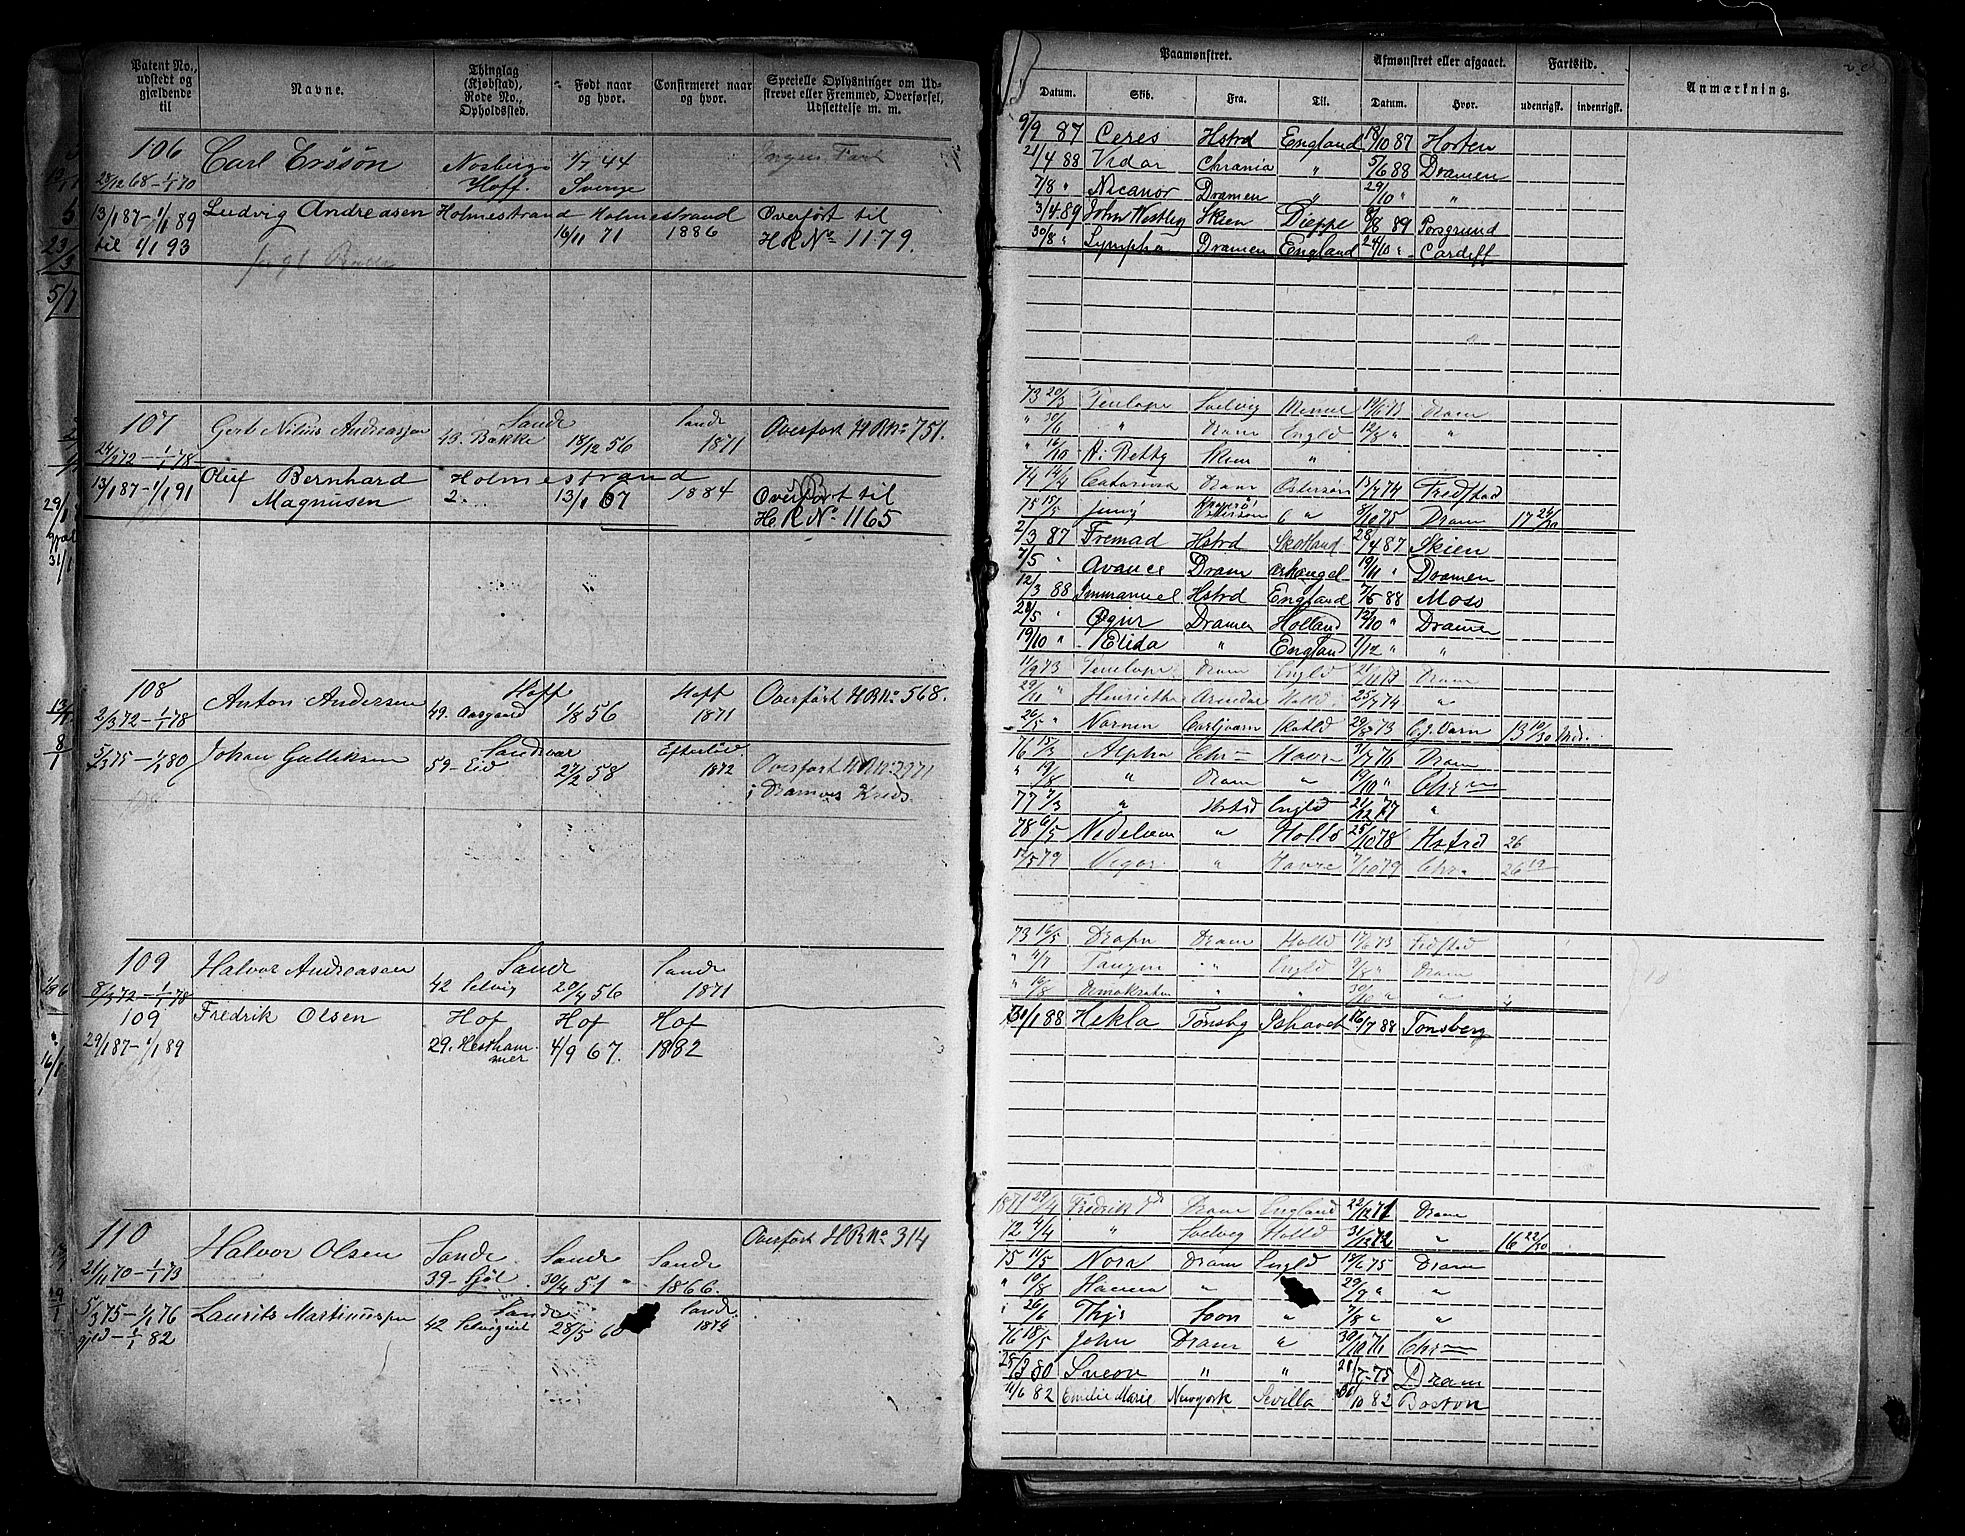 Patent No., udstedt og gjældende til
Navne.
Thinglag (Kjøbstad), Rode No., Opholdssted.
Født naar og hvor.
Confirmeret naar og hvor.
Specielle Oplysninger om Udskrevet eller Fremmed, Overførsel, Udslettelse m. m.
106
Carl Ersson
Hoff.
1/7 44
Sverige
Ingen Fart
28/12 68 – 1/1 70
13/1 87 – 1/1 89
til 1/1 93
Ludvig Andreasen
Holmestrand
16/11 71
Holmestrand
1886
Overført til
H R No 1179.
107
24/2 72 – 1/1 78
Andreassen
Sande
43. Bakke
18/12 56
Sande
1871
Overført H R No 751.
13/1 87 – 1/1 91
Oluf Bernhard
Magnusen
Holmestrand
2.
13/1 67
1884
Overført til
H R No 1165
108
2/3 72 – 1/1 78
Anton Andersen
Hoff
49. Aasgaard
1/8 56
Hoff
1871
Overført H R No 568.
5/3 75 – 1/1 80
Johan Gulliksen
Sandsvær
59 – Eid
27/2 58
1872
Overført H R No 2971
i Dramns Kreds.
109
8/3 72 – 1/1 78
Halvor Andreasen
Sande
42 Selvig
20/4 56
Sande
1871
109
29/1 87 – 1/1 89
Fredrik Olsen
Hof
29. Hestham-
mer
Hof
4/9 67.
Hof
1882
110
21/11 70 – 1/1 73
Halvor Olsen
Sande
39 –
Sande
30/4 51
Sande
1866.
Overført H R No 314
5/3 75 – 1/1 76
gjld – 1/1 82
Laurits Martinussen
Sande
42
28/5 60
Sande
1874
Paamønstret.
Afmønstret eller afgaaet.
Fartstid.
Anmærkning.
Datum. Skib. Fra. Til. Datum. Hvor. udenrigsk. indenrigsk.
9/9 87 Ceres Hstrd England 18/10 87 Horten
21/4 88 Vidar Chrania " 5/6 88 Dramen
7/8 " Nicanor Dramen " 29/10 " "
3/4 89 John Westbey Skien Dieppe 89 Porsgrund
30/8 " Lympha Dramen England 24/10 " Cardiff
73 29/3 Penelope Svelvig Memel Dram
" 30/6 " Dram Engld 12/8 " "
" 16/10 Betty Skien "
74 14/4 Catarina Dram Østersøn 13/7 74 Fredstad
75 15/5 " Dram 17 24/30
2/3 87 Fremad Hstrd Skotland 28/4 87 Skien
7/5 " Avance Dram Arkangel 19/11 " Dramen
12/3 88 Immanuel Hstrd England 7/5 88 Moss
28/5 " Øgir Dramen Holland 12/10 " Dramen
19/10 " Elida " England 1/12 " "
11/9 73 Penelope Dram Engld Dram
Henriette Arendal Holld 25/7 74 "
26/5 " Nornen 13 10/30
76 15/3 Alpha Chr– Havre 31/7 76 Dram
" 19/8 " Dram " 19/10 " Chr
77 7/3 " Hstrd Engld 77 "
78 6/5 " Holld 25/10 78 Hstrd 26
79 " Havre 7/10 79 Chr. 26 19
73 16/5 Drafn Dram Holld 17/6 73 Fredstad
" 4/7 Tangen " Engld 9/8 " Dram
" 19/8 Demokraten " " 30/10 " "
30/1 88 Hekla Tønsbg Ishavet 16/7 88 Tønsberg
1871 29/4 Fredrik Dram England 22/12 71 Dram
72 4/4 " Svelvig Holld 31/12 72 " 16 22/30
75 11/5 Nora Dram Engld 18/6 75 Dram
" 10/8 Hanna " 29/9 " "
26/6 Thys Soon " 7/8 " "
76 18/5 John Dram " 30/10 76 Chr
80 Sueon " " Dram
11/6 82 Emilie Marie Newyork Sevilla 10 82 Boston